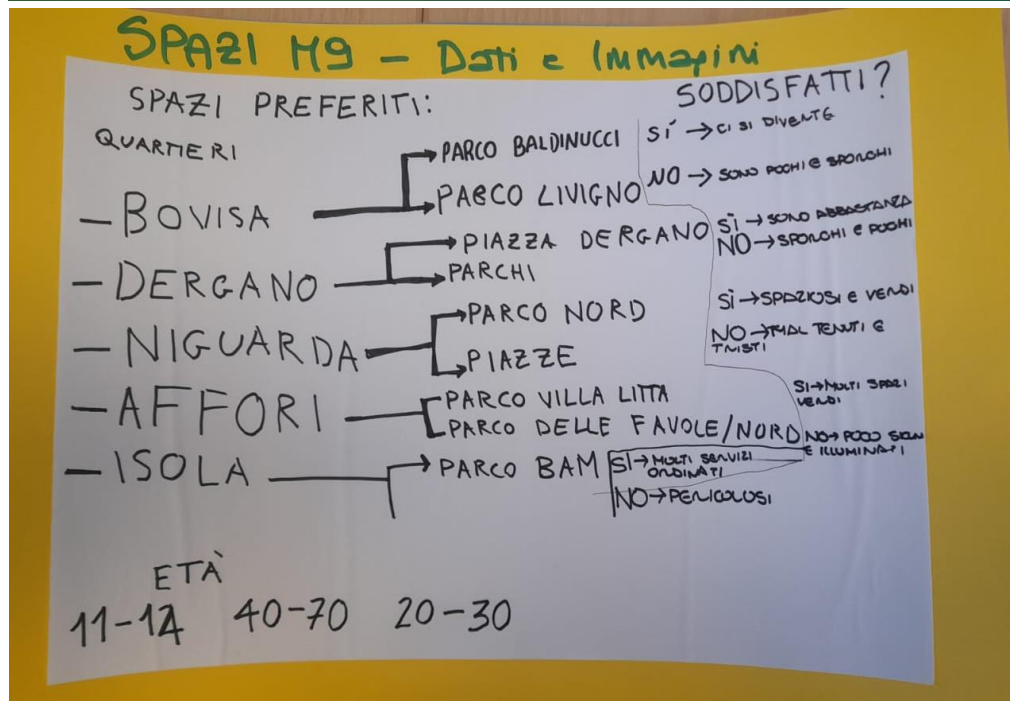 SPAZI M9 - Dati e Immagini
SPAZI PREFERITI:
SODDISFATTI?
QUARTIERI
- BOVISA
→ PARCO BALDINUCCI
→ PARCO LIVIGNO
SÍ → CI SI DIVERTE
NO → SONO POCHI E SPORCHI
- DERGANO
→ PIAZZA DERGANO
→ PARCHI
SÌ → SONO ABBASTANZA
NO → SPORCHI E POCHI
- NIGUARDA
→ PARCO NORD
→ PIAZZE
SÌ → SPAZIOSI E VERDI
NO → MAL TENUTI E
TRISTI
- AFFORI
PARCO VILLA LITTA
PARCO DELLE FAVOLE/NORD
SI → MOLTI SPAZI
VERDI
NO → POCO SICURI
E ILLUMINATI
- ISOLA
→ PARCO BAM
SÌ → MOLTI SERVIZI
ORDINATI
NO → PERICOLOSI
ETÀ
11-14 40-70 20-30